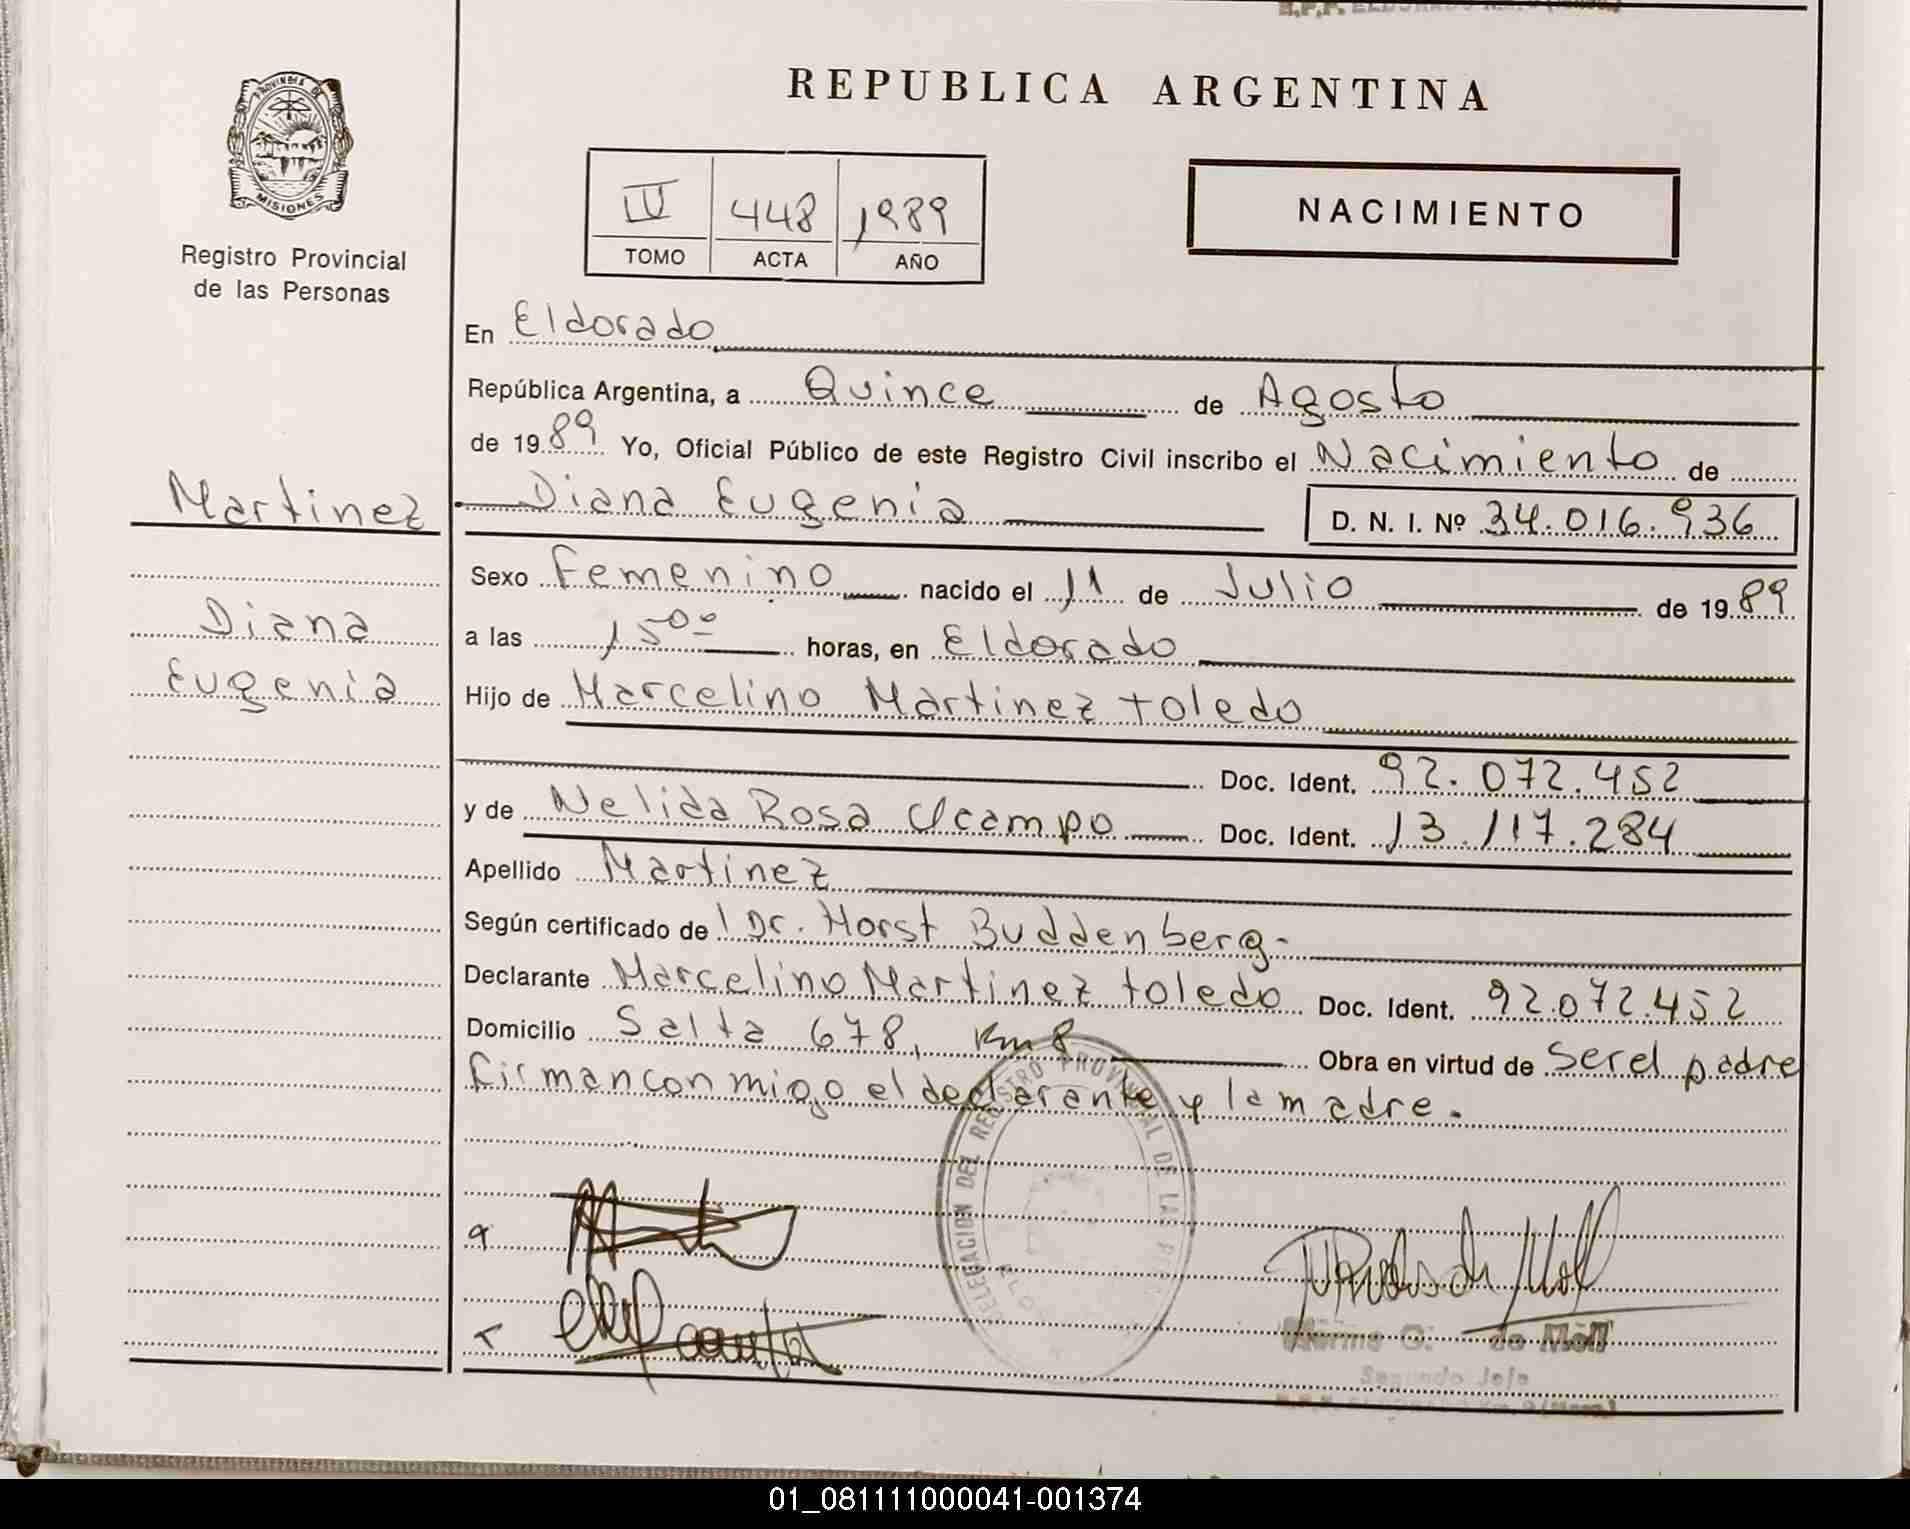 REPUBLICA ARGENTINA
PROVINCIA DE MISIONES
Registro Provincial
de las Personas
IV 448 1989
TOMO ACTA AÑO
NACIMIENTO
En Eldorado
República Argentina, a Quince de Agosto
de 1989 Yo, Oficial Público de este Registro Civil inscribo el Nacimiento de
Martinez
Diana Eugenia D. N. I. Nº 34.016.936
Sexo Femenino nacido el 11 de Julio de 1989
Diana
a las 15 00 horas, en Eldorado
Eugenia
Hijo de Marcelino Martinez toledo
Doc. Ident. 92.072.452
y de Nelida Rosa Ocampo Doc. Ident. 13.117.284
Apellido Martinez
Según certificado de l Dr. Horst Buddenberg-
Declarante Marcelino Martinez toledo Doc. Ident. 92.072.452
Domicilio Salta 678, Km 8 Obra en virtud de Ser el padre
firman con migo el declarante y la madre.
DELEGACION DEL REGISTRO PROVINCIAL DE LAS
de Moll
Segundo Jefe
01_081111000041-001374